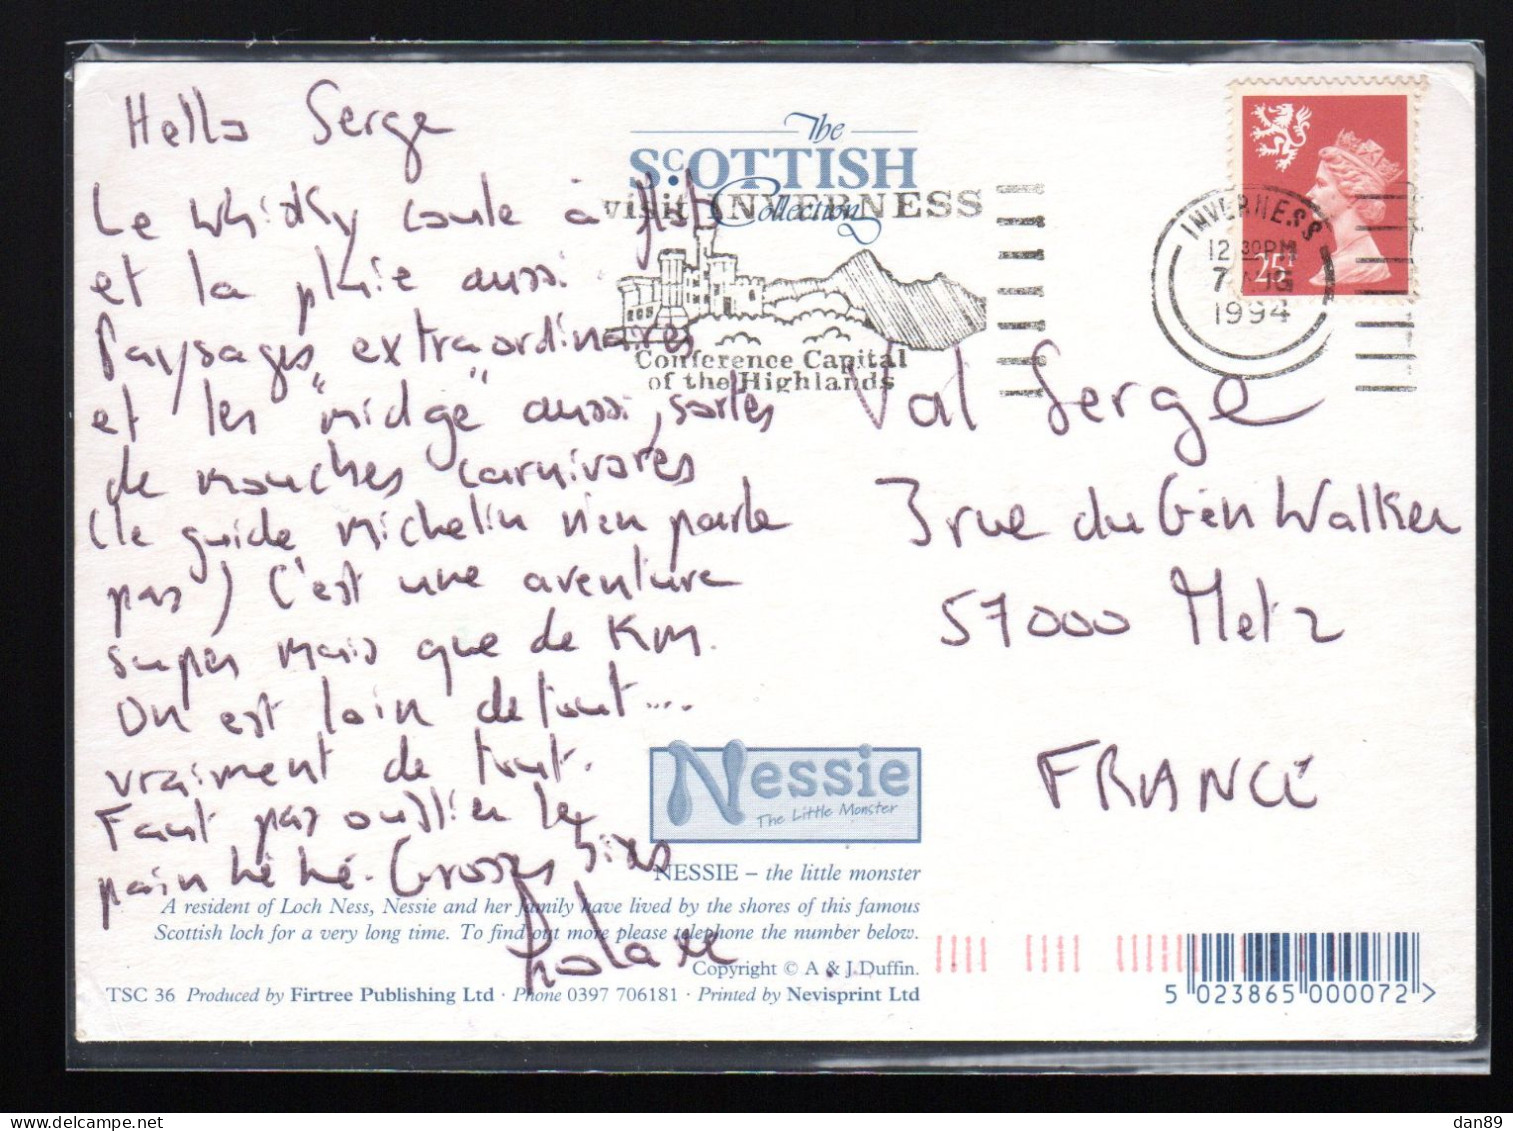 Hello Serge
Le Whisky coule à flot
et la pluie aussi
Paysages extraordinaires
et les "midge" aussi, sortes
de mouches carnivores
(le guide Michelin n'en parle
pas) C'est une aventure
super mais que de KM.
On est loin de tout....
vraiment de tout.
Faut pas oublier le
pain hé hé. Grosses bises
The
SCOTTISH
Collection
visit INVERNESS
Conference Capital
of the Highlands
INVERNESS
12 30PM
7 AUG
1994
25
Val Serge
3 rue du Gén Walker
57000 Metz
FRANCE
Nessie
The Little Monster
NESSIE – the little monster
A resident of Loch Ness, Nessie and her family have lived by the shores of this famous
Scottish loch for a very long time. To find out more please telephone the number below.
Copyright © A & J.Duffin.
TSC 36 Produced by Firtree Publishing Ltd · Phone 0397 706181 · Printed by Nevisprint Ltd
5 023865 000072 >
dan89